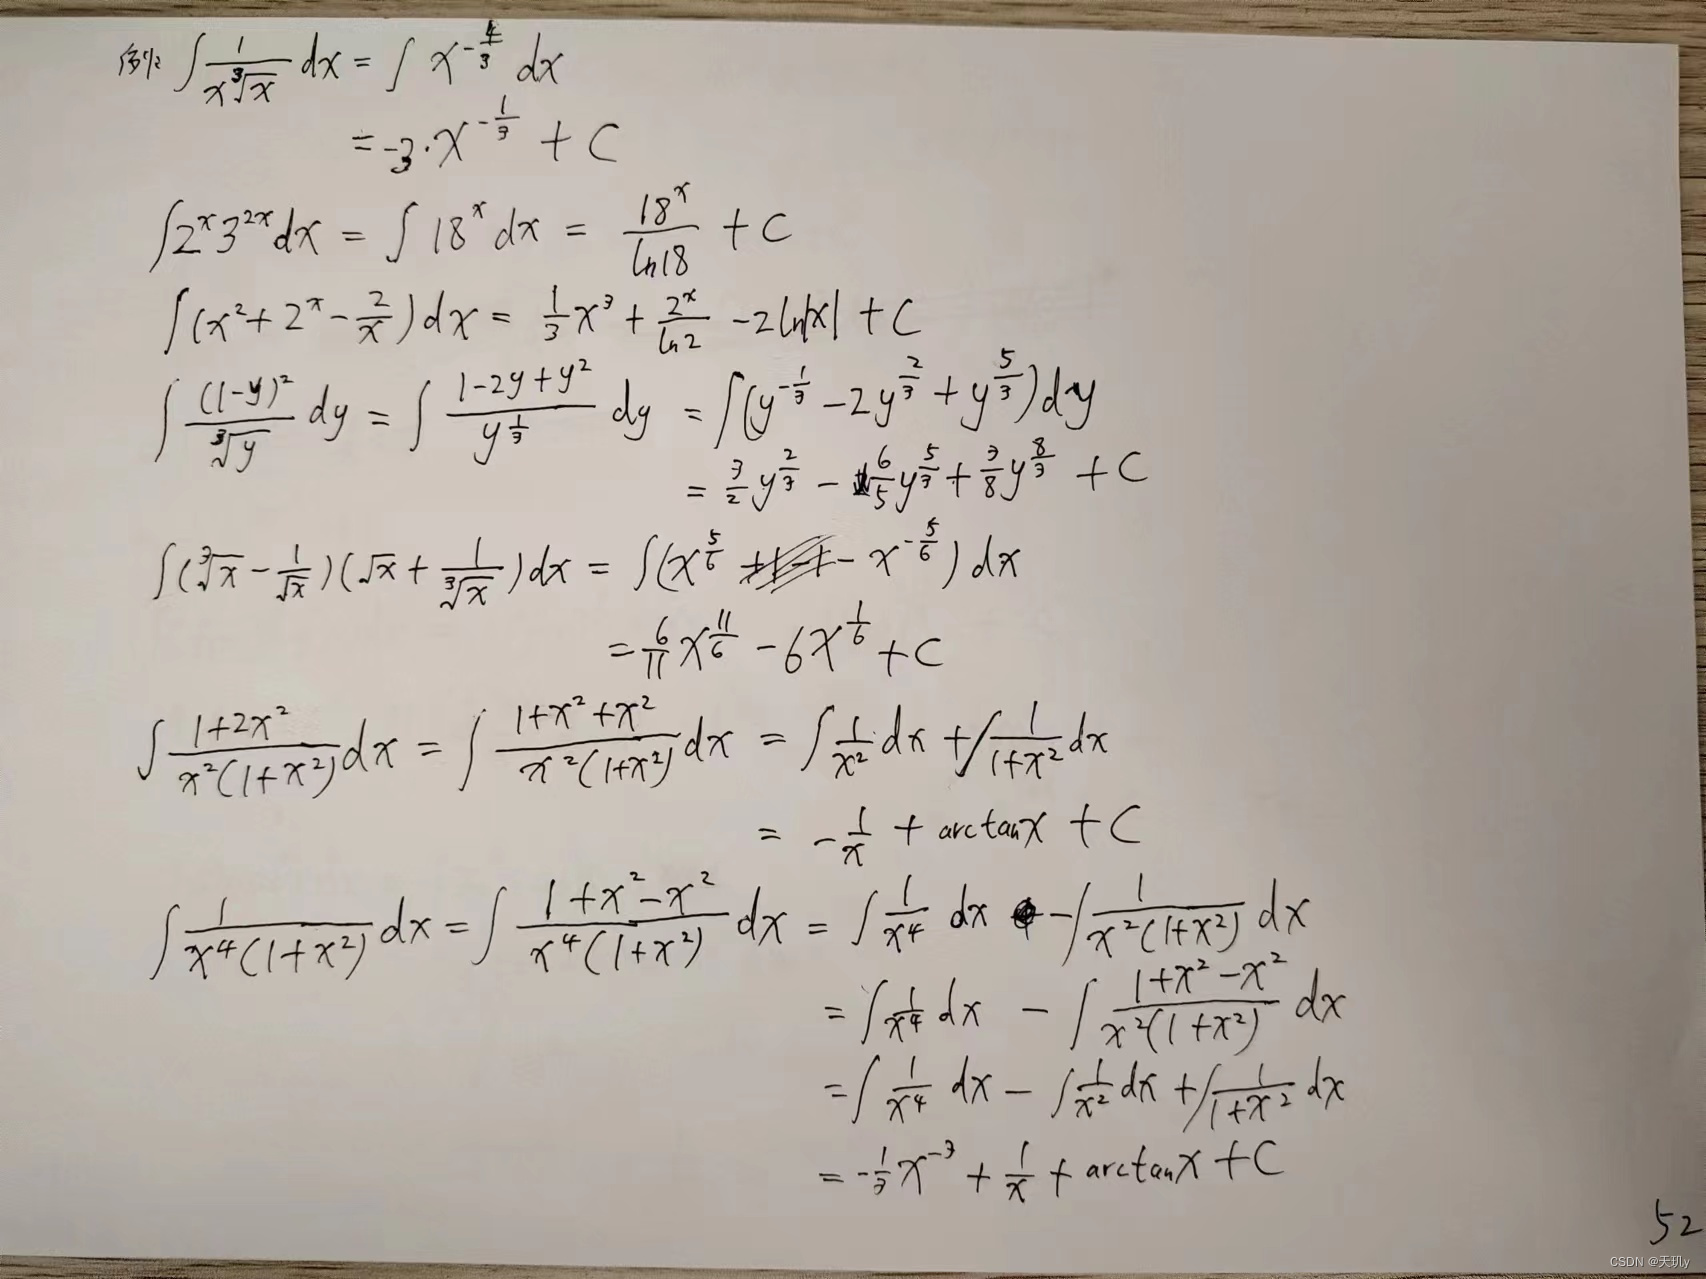 例: ∫ 1/(x∛x) dx = ∫ x^(-4/3) dx
= -3·x^(-1/3) + C
∫2^x 3^(2x) dx = ∫ 18^x dx = 18^x/ln18 + C
∫(x² + 2^x - 2/x)dx = 1/3 x³ + 2^x/ln2 - 2ln|x| + C
∫ (1-y)²/∛y dy = ∫ (1-2y+y²)/y^(1/3) dy = ∫(y^(-1/3) - 2y^(2/3) + y^(5/3))dy
= 3/2 y^(2/3) - 6/5 y^(5/3) + 3/8 y^(8/3) + C
∫(∛x - 1/√x)(√x + 1/∛x)dx = ∫(x^(5/6) - x^(-5/6)) dx
= 6/11 x^(11/6) - 6x^(1/6) + C
∫ (1+2x²)/(x²(1+x²)) dx = ∫ (1+x²+x²)/(x²(1+x²)) dx = ∫ 1/x² dx + ∫ 1/(1+x²) dx
= -1/x + arctanx + C
∫ 1/(x⁴(1+x²)) dx = ∫ (1+x²-x²)/(x⁴(1+x²)) dx = ∫ 1/x⁴ dx - ∫ 1/(x²(1+x²)) dx
= ∫ 1/x⁴ dx - ∫ (1+x²-x²)/(x²(1+x²)) dx
= ∫ 1/x⁴ dx - ∫ 1/x² dx + ∫ 1/(1+x²) dx
= -1/3 x^(-3) + 1/x + arctanx + C
52
CSDN @天玑y